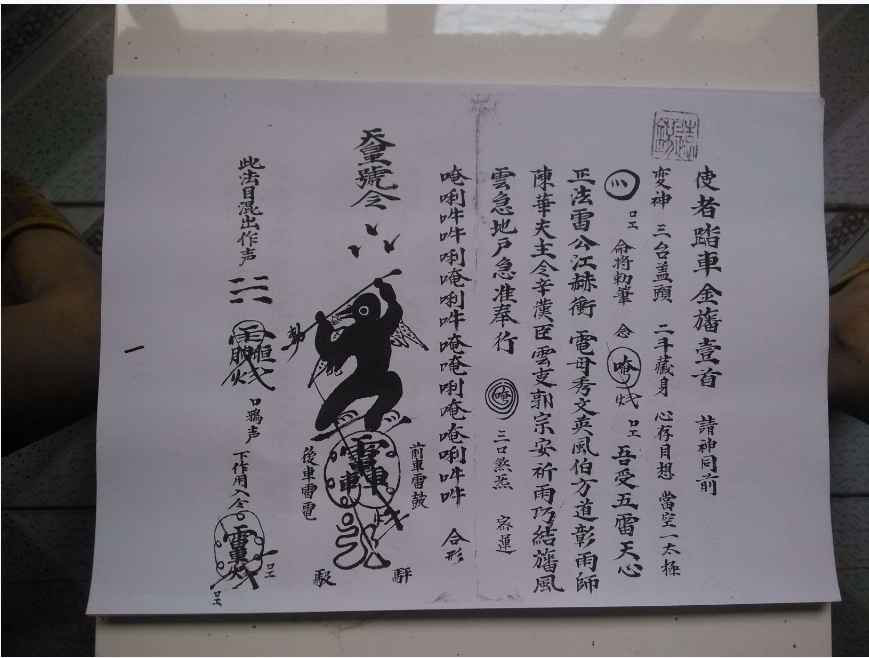 使者踏車金旛壹首　請神同前
変神　三台蓋頭　二斗藏身　心存目想　當空一太極
命將勅筆　念　唵　吾受五雷天心
正法雷公江赫衝　電母秀文英風伯方道彰雨師
陳華夫主令辛漢臣雲吏郭宗安祈雨巧結旛風
雲急地户急准奉行　唵　三口煞炁　密運
唵唎吽吽唎唵唎吽唵唵唎唵唵唎吽吽　合形
天皇號令
勅
前車雷鼓
後車雷電
此法目混出作声
口鴉声
下作用入令
一